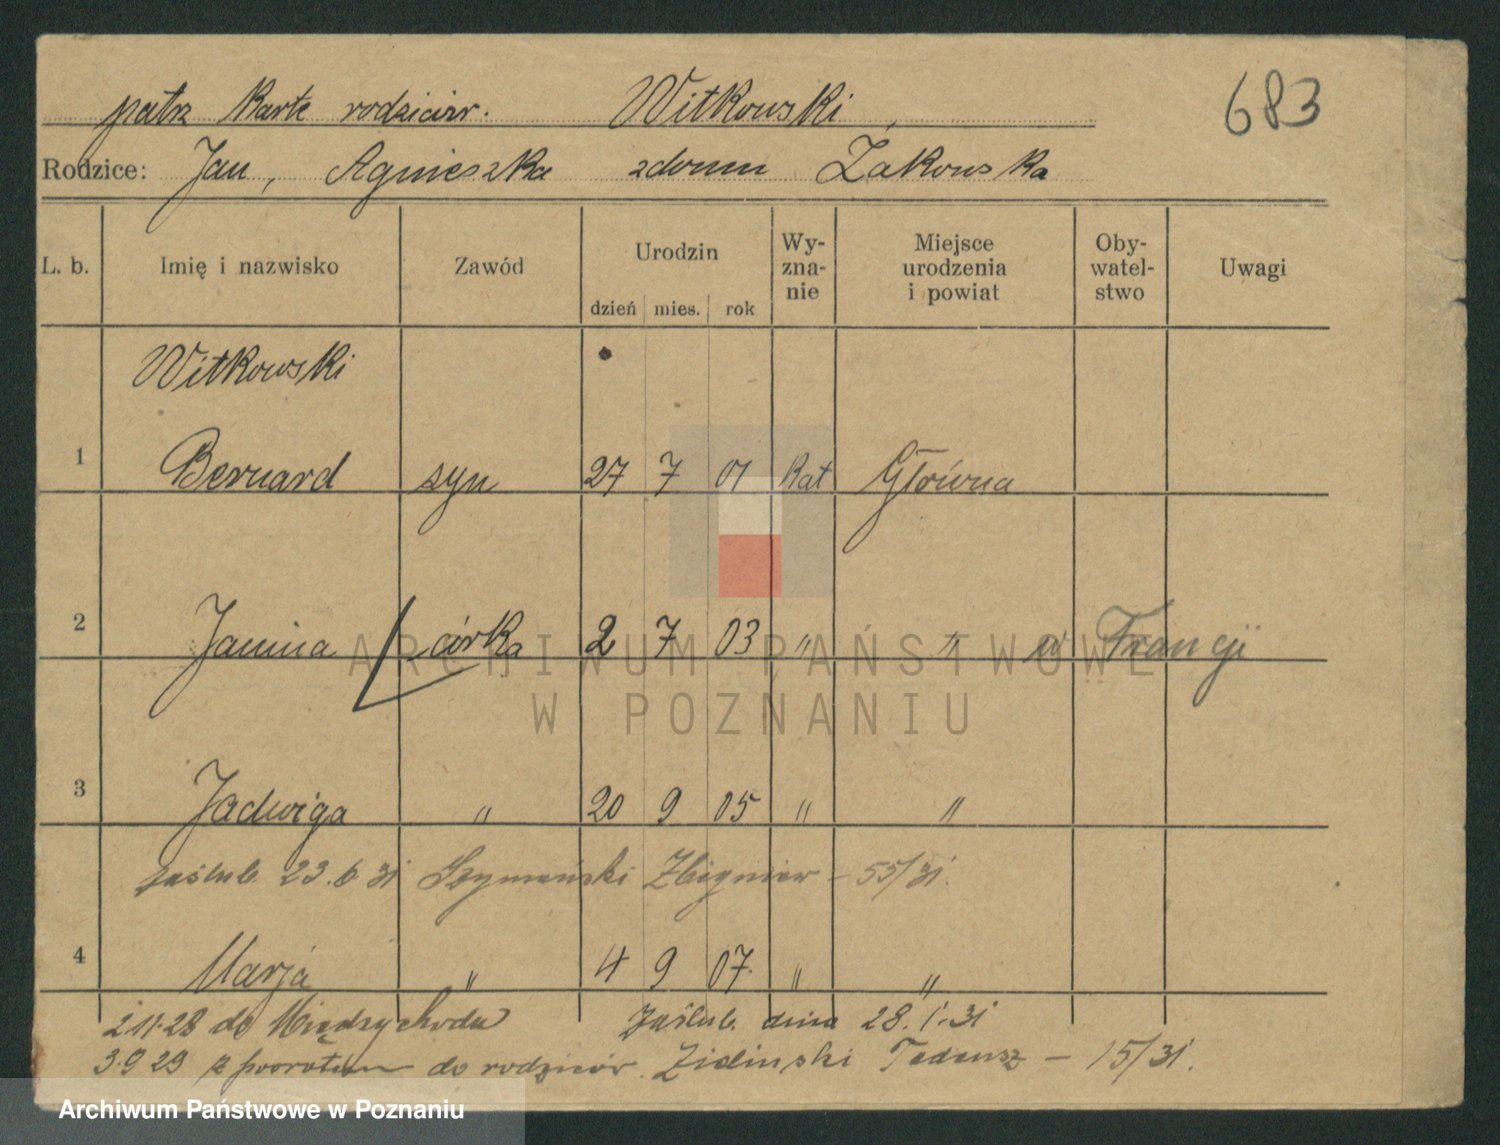 patrz Kartę rodziców. Witkowski, 683
Rodzice: Jan, Agnieszka zdomu Żakowska
L. b. Imię i nazwisko Zawód Urodzin dzień mies. rok Wy-zna-nie Miejsce urodzenia i powiat Oby-watel-stwo Uwagi
Witkowski
1 Bernard syn 27 7 01 Kat Główna
2 Janina córka 2 7 03 " " w Francji
3 Jadwiga " 20 9 05 " "
zaślub. 23.6.31 Szymański Zbigniew – 55/31.
4 Marja " 4 9 07. " "
2.11.28 do Międzychodu Zaślub. dnia 28.1.31
3.9.29 z powrotem do rodziców. Zieliński Tadeusz – 15/31.
ARCHIWUM PAŃSTWOWE
W POZNANIU
Archiwum Państwowe w Poznaniu